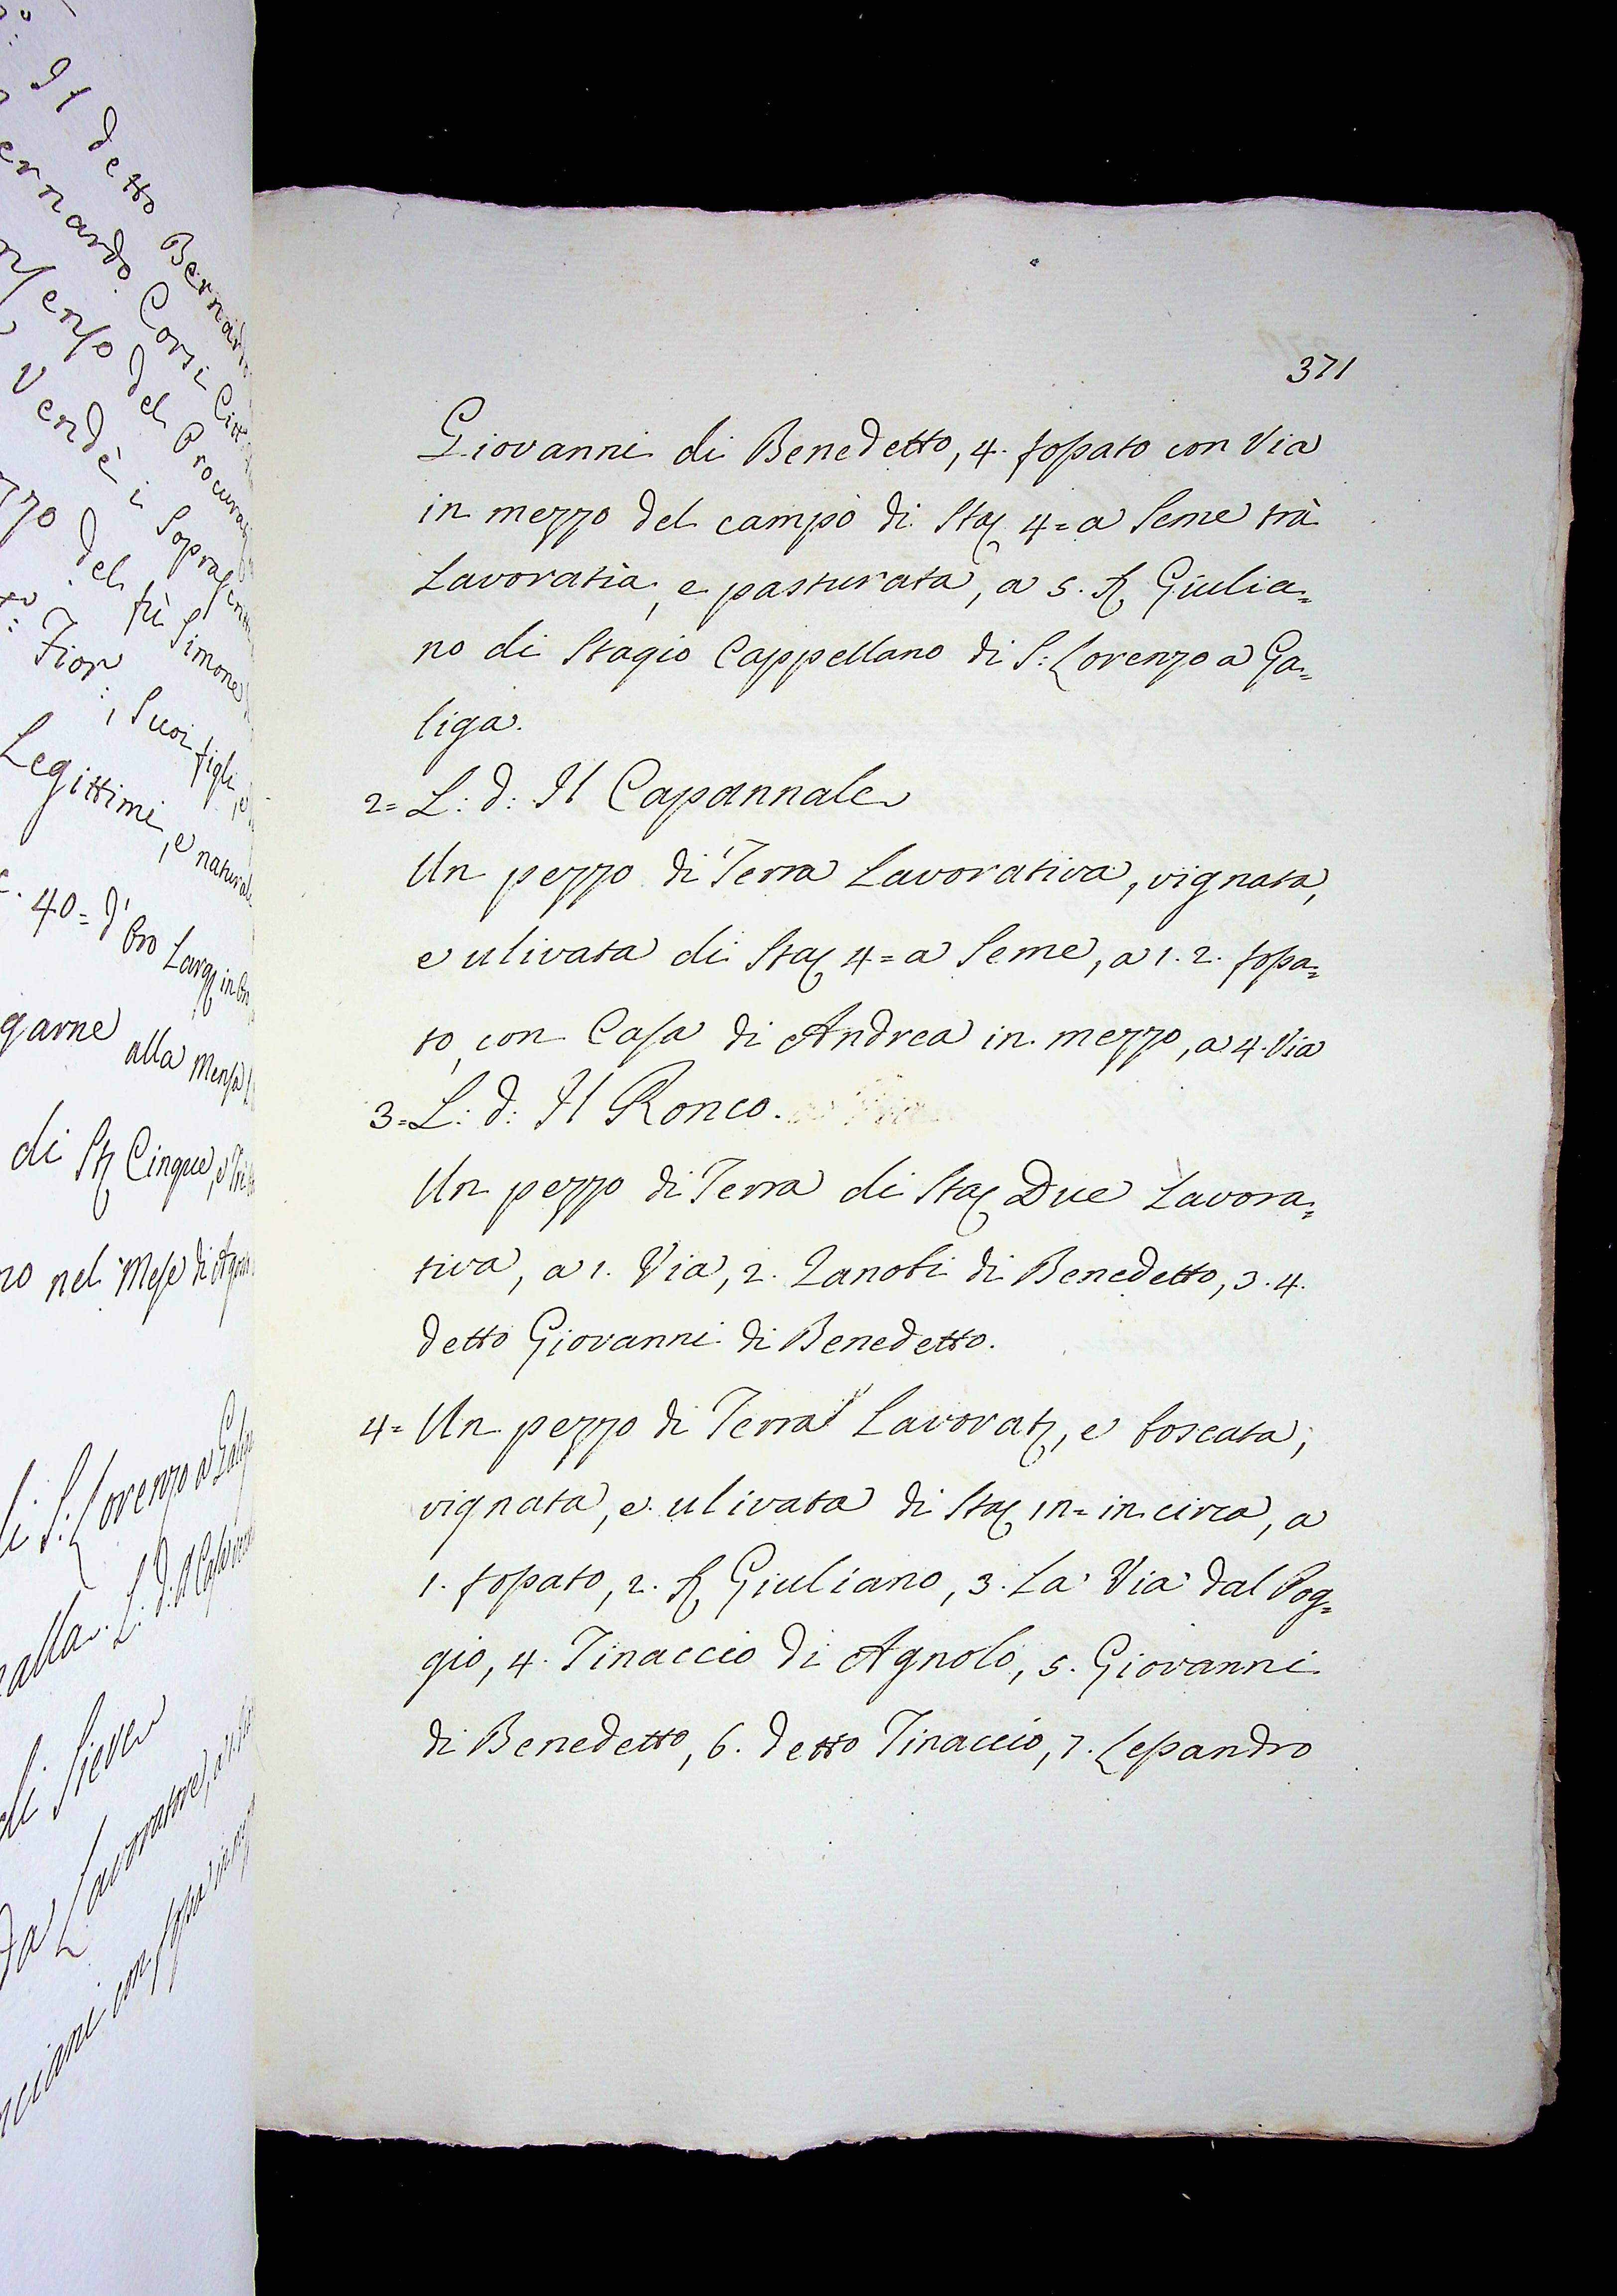 371
Giovanni di Benedetto, 4. fossato con Via
in mezzo del campo di Sta 4= a Seme trà
Lavoratia, e pasturata, a 5. Giulia=
no di Stagio Cappellano di S: Lorenzo a Ga=
liga.
2= L: d: Il Capannale
Un pezzo di Terra Lavorativa, vignata,
e ulivata di Sta 4= a Seme, a 1. 2. fossa=
to, con Casa di Andrea in mezzo, a 4. Via
3= L: d: Il Ronco.
Un pezzo di Terra di Sta Due Lavora=
tiva, a 1. Via, 2. Zanobi di Benedetto, 3. 4.
detto Giovanni di Benedetto.
4= Un pezzo di Terra Lavorat, e boscata,
vignata, e ulivata di Sta in= in circa, a
1. fossato, 2. Giuliano, 3. La Via dal Pog=
gio, 4. Tinaccio di Agnolo, 5. Giovanni
di Benedetto, 6. detto Tinaccio, 7. Lessandro
Il detto Bernardo
Corsi
del
Vendè i
del fù Simone
Fior: , Suoi figli
Legittimi, e naturale
40= d'Oro Larg
alla Mensa
di St Cinque, e
nel Mese di
S: Lorenzo a
L: d: Il
di Sieve
da Lavoratore,
con